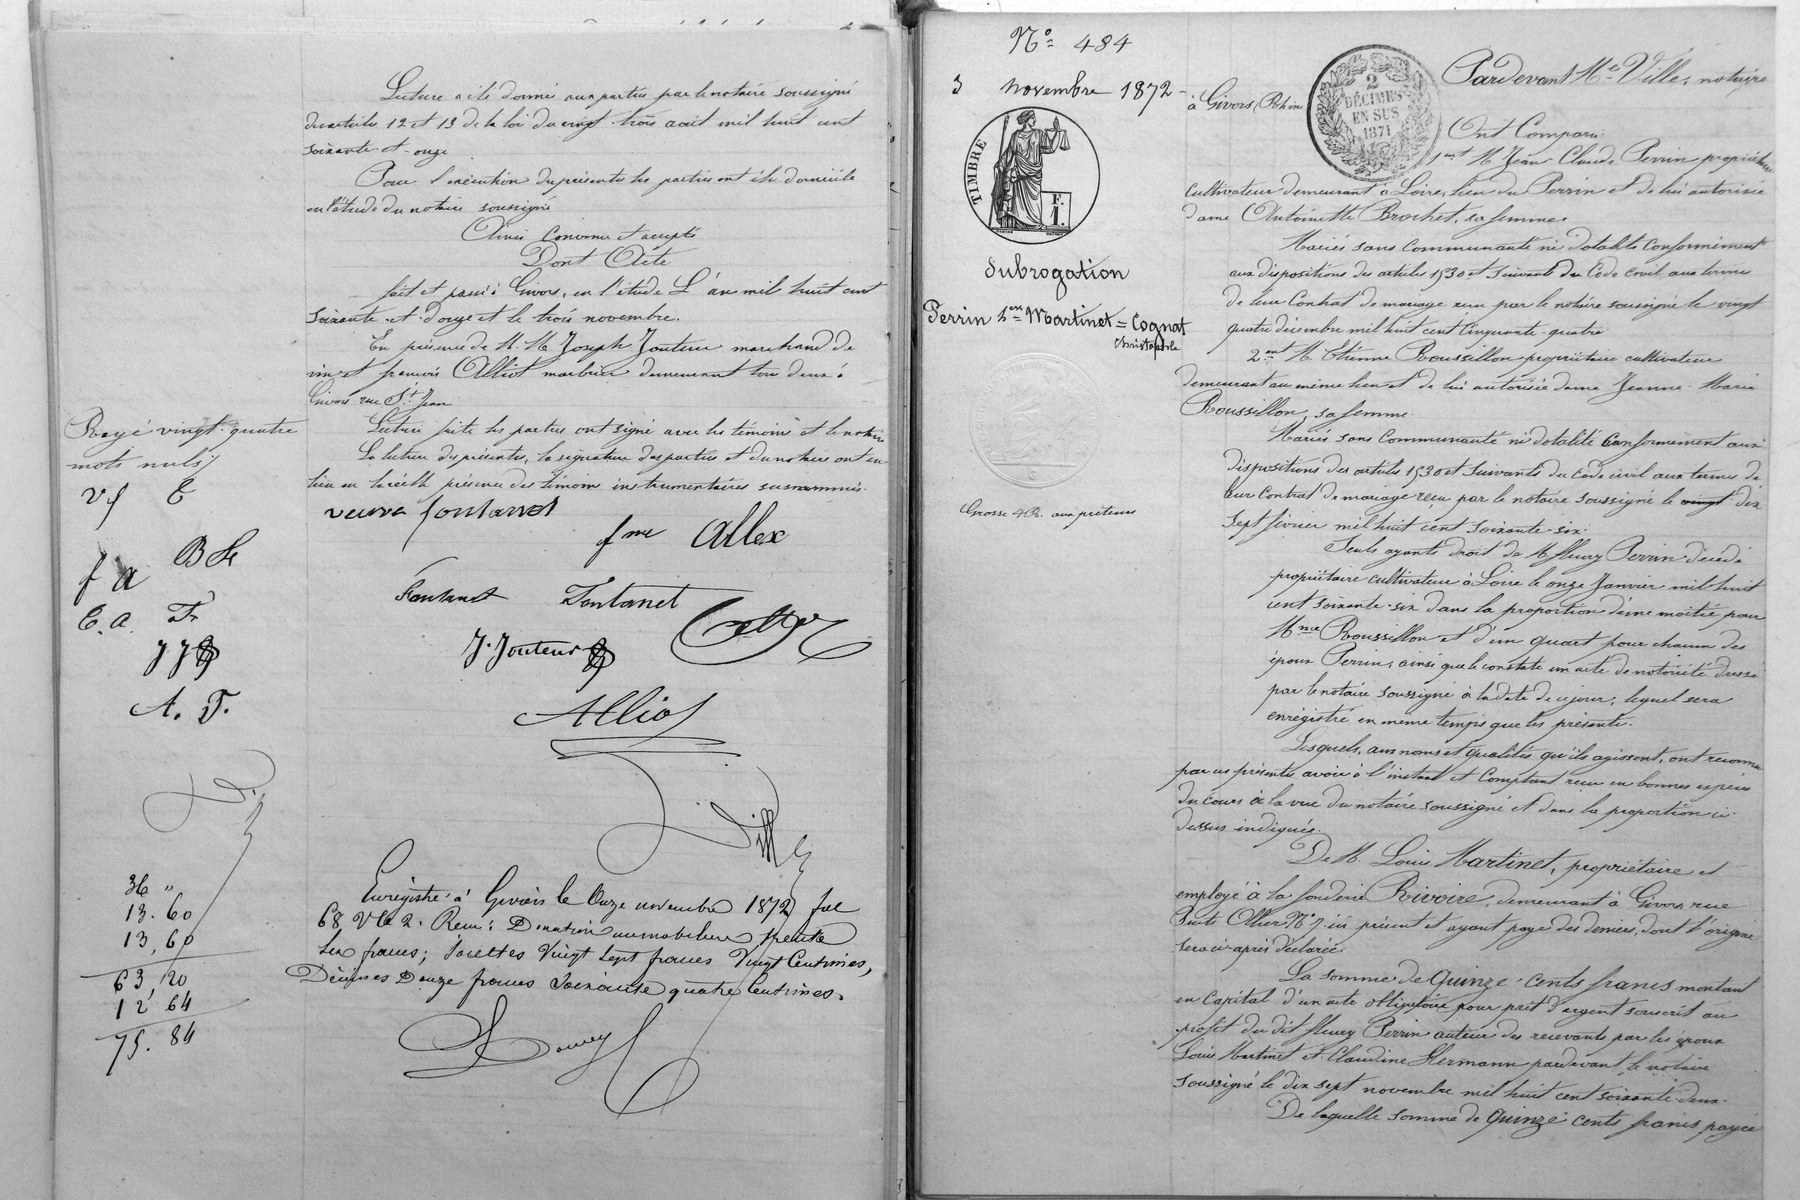 Lecture a été donnée aux parties par le notaire soussigné
des articles 12 et 13 de la loi du vingt trois août mil huit cent
soixante et onze
Pour l'exécution des présentes les parties ont élu domicile
en l'étude du notaire soussigné
Ainsi convenu et accepté
Dont Acte
fait et passé à Givors, en l'étude L'an mil huit cent
soixante et douze et le trois novembre.
En présence de M.M. Joseph Jouteur marchand de
vin et françois Alliot marbrier demeurant tous deux à
Givors rue St Jean
Lecture faite les parties ont signé avec les témoins et le notaire
La lecture des présentes, la signature des parties et du notaire ont eu
lieu en la réelle présence des témoins instrumentaires susnommés.
Rayé vingt-quatre
mots nuls
vf E
BF
f a
E. a. F.
JJ
A. F.
veuve fontanet
fme Allex
Fontanet Fontanet
J. Jouteur
Alliot
Ville
36 "
13. 60
13, 60
63, 20
12 64
75. 84
Enregistré à Givors le Onze novembre 1872 fol
68 Vo C 2. Reçu: Donation immobilière trente
six francs; soultes Vingt sept francs Vingt Centimes,
Décimes Douze francs Soixante quatre Centimes.
No 484
3 novembre 1872
TIMBRE
F.
1.
Subrogation
Perrin hers Martinet = Cognat
Christophe
Grosse 4 R. aux prêteurs
2
DÉCIMES
EN SUS
1871
Pardevant Me Ville, notaire
à Givors, Rhône
Ont Comparu
1ent M. Jean-Claude Perrin propriétaire
cultivateur demeurant à Loire, lieu du Perrin et de lui autorisée
dame Antoinette Brochet, sa femme.
Mariés sans communauté ni dotalité conformément
aux dispositions des articles 1530 et suivants du Code civil aux termes
de leur Contrat de mariage reçu par le notaire soussigné le vingt
quatre décembre mil huit cent cinquante-quatre
2ent M. Etienne Roussillon propriétaire cultivateur
demeurant au même lieu et de lui autorisée dame Jeanne-Marie
Roussillon, sa femme
Mariés sans Communauté ni dotalité Conformément aux
dispositions des articles 1530 et suivants du Code civil aux termes de
leur Contrat de mariage reçu par le notaire soussigné le vingt dix
sept février mil huit cent soixante-six
Seuls ayants droit de M. fleury Perrin décédé
propriétaire cultivateur à Loire le onze Janvier mil huit
cent soixante-six dans la proportion d'une moitié pour
Mme Roussillon et d'un quart pour chacun des
époux Perrin, ainsi que le constate un acte de notoriété dressé
par le notaire soussigné à la date de ce jour, lequel sera
enregistré en même temps que les présentes.
Lesquels, aux noms et qualités qu'ils agissent, ont reconnu
par ces présentes avoir à l'instant et Comptant reçu en bonnes espèces
du cours à la vue du notaire soussigné et dans la proportion ci-
dessus indiquée.
De M. Louis Martinet, propriétaire et
employé à la fonderie Rivoire, demeurant à Givors, rue
Puits Ollier No 7 ici présent et ayant payé des deniers, dont l'origine
sera ci-après déclarée
La somme de Quinze-cents francs montant
en Capital d'un acte obligatoire pour prêt d'argent souscrit au
profit du dit fleury Perrin auteur des recevants par les époux
Louis Martinet et Claudine Hermann pardevant le notaire
soussigné le dix sept novembre mil huit cent soixante-deux.
De laquelle somme de Quinze-cents francs payée